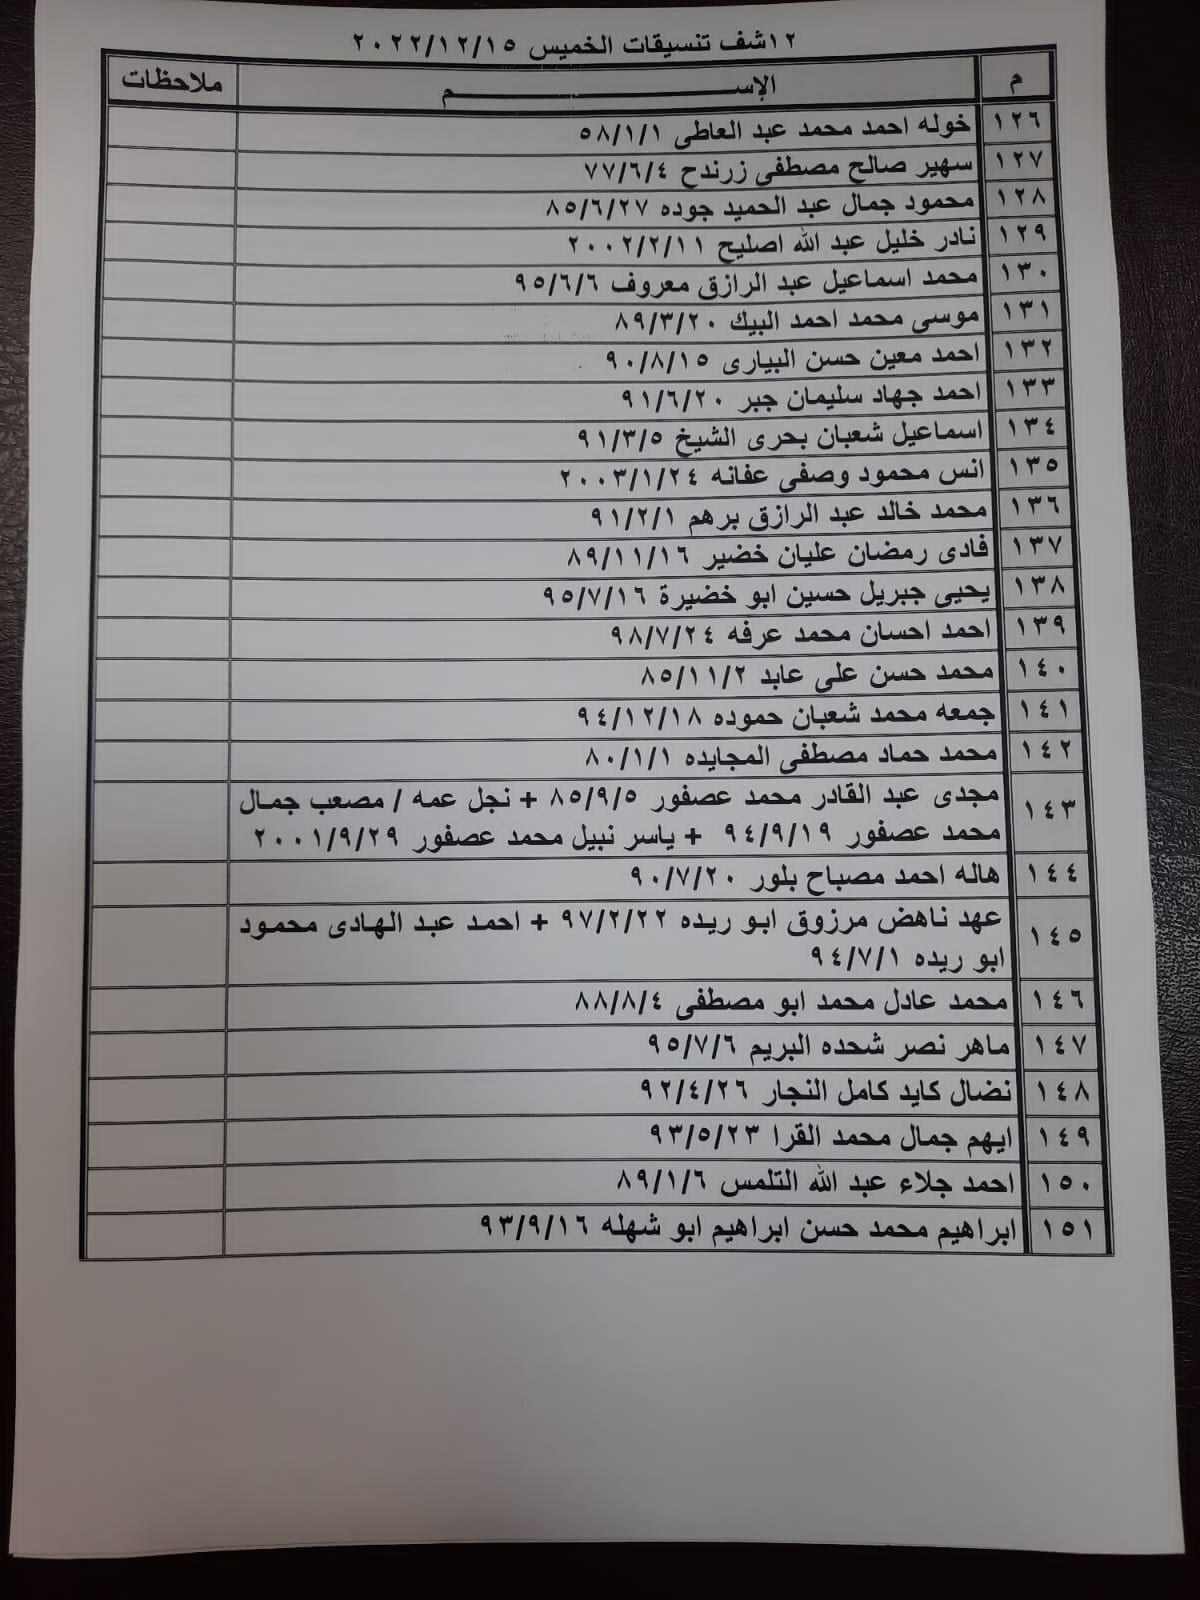 ١٢شف تنسيقات الخميس ٢٠٢٢/١٢/١٥
م الإســـــــــم ملاحظات
١٢٦ خوله احمد محمد عبد العاطى ٥٨/١/١
١٢٧ سهير صالح مصطفى زرندح ٧٧/٦/٤
١٢٨ محمود جمال عبد الحميد جوده ٨٥/٦/٢٧
١٢٩ نادر خليل عبد الله اصليح ٢٠٠٢/٢/١١
١٣٠ محمد اسماعيل عبد الرازق معروف ٩٥/٦/٦
١٣١ موسى محمد احمد البيك ٨٩/٣/٢٠
١٣٢ احمد معين حسن البيارى ٩٠/٨/١٥
١٣٣ احمد جهاد سليمان جبر ٩١/٦/٢٠
١٣٤ اسماعيل شعبان بحرى الشيخ ٩١/٣/٥
١٣٥ انس محمود وصفى عفانه ٢٠٠٣/١/٢٤
١٣٦ محمد خالد عبد الرازق برهم ٩١/٢/١
١٣٧ فادى رمضان عليان خضير ٨٩/١١/١٦
١٣٨ يحيى جبريل حسين ابو خضيرة ٩٥/٧/١٦
١٣٩ احمد احسان محمد عرفه ٩٨/٧/٢٤
١٤٠ محمد حسن على عابد ٨٥/١١/٢
١٤١ جمعه محمد شعبان حموده ٩٤/١٢/١٨
١٤٢ محمد حماد مصطفى المجايده ٨٠/١/١
١٤٣ مجدى عبد القادر محمد عصفور ٨٥/٩/٥ + نجل عمه / مصعب جمال
محمد عصفور ٩٤/٩/١٩ + ياسر نبيل محمد عصفور ٢٠٠١/٩/٢٩
١٤٤ هاله احمد مصباح بلور ٩٠/٧/٢٠
١٤٥ عهد ناهض مرزوق ابو ريده ٩٧/٢/٢٢ + احمد عبد الهادى محمود
ابو ريده ٩٤/٧/١
١٤٦ محمد عادل محمد ابو مصطفى ٨٨/٨/٤
١٤٧ ماهر نصر شحده البريم ٩٥/٧/٦
١٤٨ نضال كايد كامل النجار ٩٢/٤/٢٦
١٤٩ ايهم جمال محمد القرا ٩٣/٥/٢٣
١٥٠ احمد جلاء عبد الله التلمس ٨٩/١/٦
١٥١ ابراهيم محمد حسن ابراهيم ابو شهله ٩٣/٩/١٦